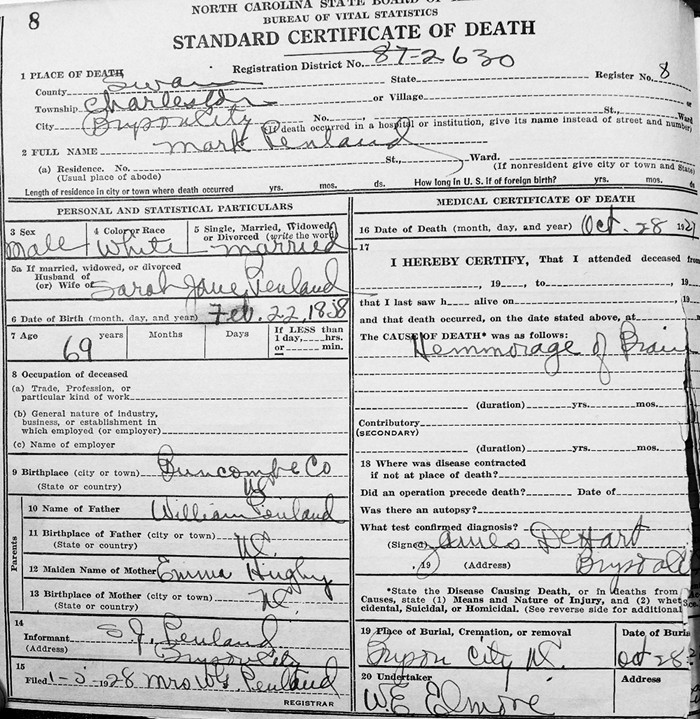 8
NORTH CAROLINA STATE BOARD OF
BUREAU OF VITAL STATISTICS
STANDARD CERTIFICATE OF DEATH
Registration District No. 87-2630
1 PLACE OF DEATH
County Swain State Register No. 8
Township Charleston or Village
City Bryson City No. St., Ward
(If death occurred in a hospital or institution, give its name instead of street and number
2 FULL NAME Mark Penland
(a) Residence. No. St., Ward.
(Usual place of abode) (If nonresident give city or town and State)
Length of residence in city or town where death occurred yrs. mos. ds. How long in U. S. if of foreign birth? yrs. mos.
PERSONAL AND STATISTICAL PARTICULARS
3 Sex 4 Color or Race 5 Single, Married, Widowed,
or Divorced (write the word)
Male White married
5a If married, widowed, or divorced
Husband of
(or) Wife of Sarah Jane Penland
6 Date of Birth (month, day, and year) Feb. 22, 1858
7 Age years Months Days If LESS than
1 day, hrs.
or min.
69
8 Occupation of deceased
(a) Trade, Profession, or
particular kind of work
(b) General nature of industry,
business, or establishment in
which employed (or employer)
(c) Name of employer
9 Birthplace (city or town) Buncombe Co
(State or country) NC
Parents
10 Name of Father William Penland
11 Birthplace of Father (city or town)
(State or country) NC.
12 Maiden Name of Mother Emma
13 Birthplace of Mother (city or town)
(State or country) NC.
14
Informant S J. Penland
(Address) Bryson City
15
Filed 1-5-1928 Mrs Penland
REGISTRAR
MEDICAL CERTIFICATE OF DEATH
16 Date of Death (month, day, and year) Oct. 28 1927
17
I HEREBY CERTIFY, That I attended deceased from
, 19 , to , 19
that I last saw h alive on , 19
and that death occurred, on the date stated above, at
The CAUSE OF DEATH* was as follows:
Hemmorage of Brain
(duration) yrs. mos.
Contributory
(SECONDARY)
(duration) yrs. mos.
18 Where was disease contracted
if not at place of death?
Did an operation precede death? Date of
Was there an autopsy?
What test confirmed diagnosis?
(Signed) James DeHart
, 19 (Address)
*State the Disease Causing Death, or in deaths from
Causes, state (1) Means and Nature of Injury, and (2) whet
cidental, Suicidal, or Homicidal. (See reverse side for additional
19 Place of Burial, Cremation, or removal Date of Buria
Bryson City NC. Oct 28-2
20 Undertaker Address
W E Elmore